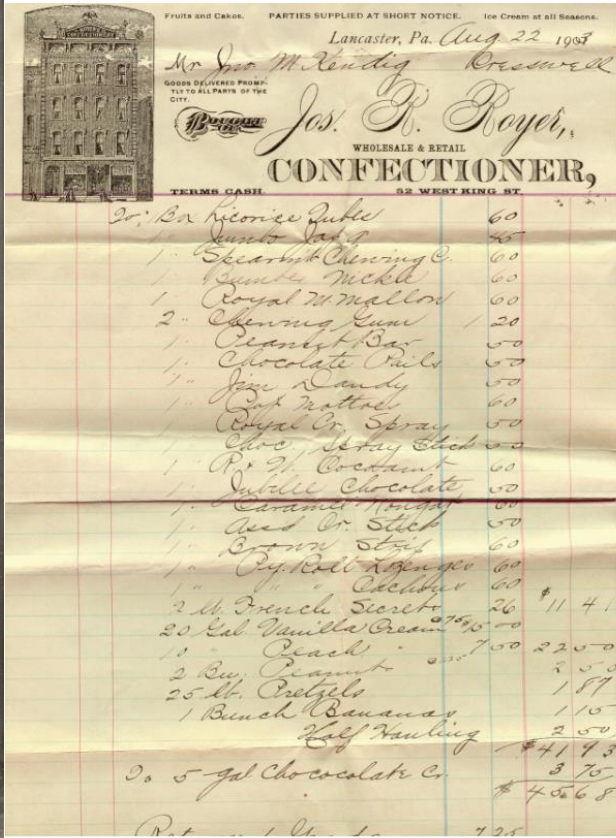 Fruits and Cakes. PARTIES SUPPLIED AT SHORT NOTICE. Ice Cream at all Seasons.
Lancaster, Pa. Aug. 22 190
Mr Jno M. Kendig Cresswell
GOODS DELIVERED PROMP-
TLY TO ALL PARTS OF THE
CITY.
BOUGHT OF Jos. R. Royer,
WHOLESALE & RETAIL
CONFECTIONER,
TERMS CASH. 52 WEST KING ST.
To 1 Box Licorice Tubes 60
1 " Jumbo 45
1 " Spearmint Chewing G. 60
1 " Nickle 60
1 " Royal M. Mallow 60
2 " Chewing Gum 1 20
1 " Peanut Bar 50
1 " Chocolate Pails 50
1 " Jim Dandy 50
1 " Mottoes 60
1 " Royal Cr. Spray 50
1 " Choc. Spray Stick 50
1 " Cocoanut 60
1 " Jubilee Chocolate 50
1 " Caramel Nougat 60
1 " Assd Cr. Stick 50
1 " Brown Strip 60
1 " Py. Roll Lozenges 60
1 " " " Cachous 60
2 lb. French Secrets 26 $11 41
20 Gal. Vanilla Cream @ 75¢ 15 00
10 " Peach " 7 50 22 50
2 Bu. Peanuts 2 50
25 lb. Pretzels 1 87
1 Bunch Bananas 1 15
Half Hauling 2 50
$41 93
To 5 gal Chococolate Cr. 3 75
$ 45 68
7 25